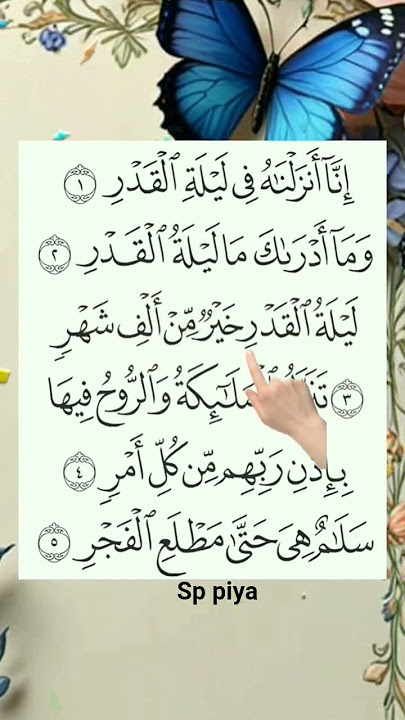 إِنَّآ أَنزَلۡنَٰهُ فِي لَيۡلَةِ ٱلۡقَدۡرِ ١
وَمَآ أَدۡرَىٰكَ مَا لَيۡلَةُ ٱلۡقَدۡرِ ٢
لَيۡلَةُ ٱلۡقَدۡرِ خَيۡرٞ مِّنۡ أَلۡفِ شَهۡرٖ
٣ وَٱلرُّوحُ فِيهَا
بِإِذۡنِ رَبِّهِم مِّن كُلِّ أَمۡرٖ ٤
سَلَٰمٌ هِيَ حَتَّىٰ مَطۡلَعِ ٱلۡفَجۡرِ ٥
Sp piya